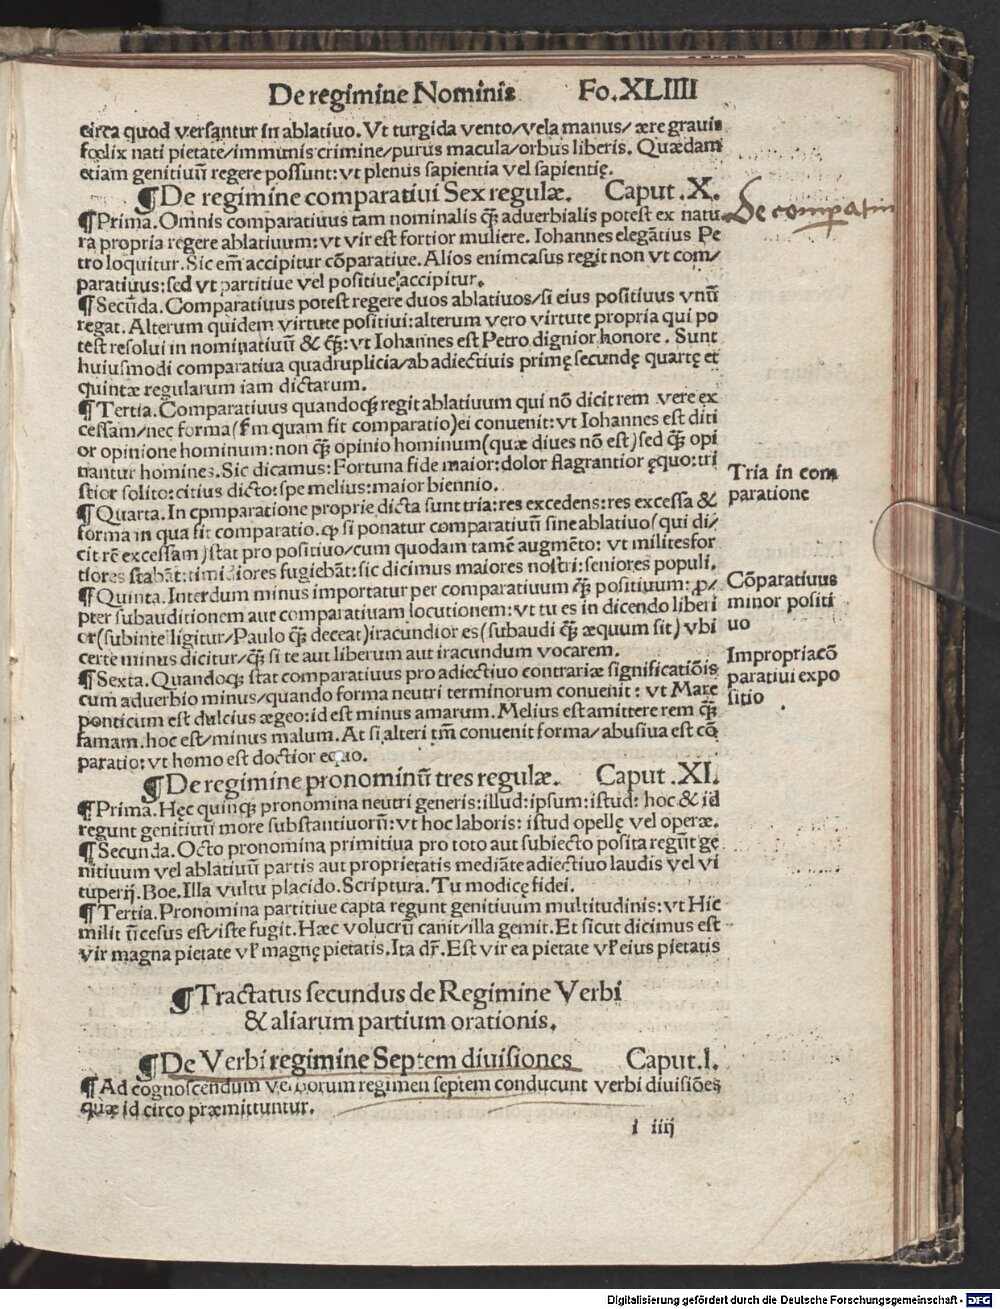 De regimine Nominis Fo.XLIIII
circa quod versantur in ablatiuo. Vt turgida vento/vela manus/ ære grauis
fœlix nati pietate/immunis crimine/purus macula/orbus liberis. Quædam
etiam genitiuū regere possunt: vt plenus sapientia vel sapientię.
¶De regimine comparatiui Sex regulæ. Caput .X.
¶Prima. Omnis comparatiuus tam nominalis q̄ꝫ aduerbialis potest ex natu
ra propria regere ablatiuum: vt vir est fortior muliere. Iohannes elegātius Pe
tro loquitur. Sic em̄ accipitur cōparatiue. Alios enim casus regit non vt com/
paratiuus: sed vt partitiue vel positiue accipitur.
De compatiu
¶Secūda. Comparatiuus potest regere duos ablatiuos/si eius positiuus vnū
regat. Alterum quidem virtute positiui: alterum vero virtute propria qui po
test resolui in nominatiuū & q̄ꝫ: vt Iohannes est Petro dignior honore. Sunt
huiusmodi comparatiua quadruplicia/ab adiectiuis primę secundę quartę et
quintæ regularum iam dictarum.
¶Tertia. Comparatiuus quandoqꝫ regit ablatiuum qui nō dicit rem vere ex
cessam/nec forma (ẜm quam fit comparatio) ei conuenit: vt Iohannes est diti
or opinione hominum: non q̄ꝫ opinio hominum (quæ diues nō est) sed q̄ꝫ opi
nantur homines. Sic dicamus: Fortuna fide maior: dolor flagrantior ęquo: tri
stior solito: citius dicto: spe melius: maior biennio.
Tria in com
paratione
¶Quarta. In comparatione proprie dicta sunt tria: res excedens: res excessa &
forma in qua fit comparatio. ꝙ si ponatur comparatiuū sine ablatiuo (qui di/
cit rē excessam) stat pro positiuo/cum quodam tamē augmēto: vt milites for
tiores stabāt: timidiores fugiebāt: sic dicimus maiores nostri: seniores populi.
¶Quinta. Interdum minus importatur per comparatiuum q̄ꝫ positiuum: ꝓ/
pter subauditionem aut comparatiuam locutionem: vt tu es in dicendo liberi
or (subintelligitur/Paulo q̄ꝫ deceat) iracundior es (subaudi q̄ꝫ æquum sit) vbi
certe minus dicitur/q̄ꝫ si te aut liberum aut iracundum vocarem.
Cōparatiuus
minor positi
uo
¶Sexta. Quandoqꝫ stat comparatiuus pro adiectiuo contrariæ significatiōis
cum aduerbio minus/quando forma neutri terminorum conuenit: vt Mare
ponticum est dulcius ægeo: id est minus amarum. Melius est amittere rem q̄ꝫ
famam. hoc est/minus malum. At si alteri tm̄ conuenit forma/abusiua est cō
paratio: vt homo est doctior equo.
Impropria cō
paratiui expo
sitio
¶De regimine pronominū tres regulæ. Caput .XI.
¶Prima. Hęc quinqꝫ pronomina neutri generis: illud: ipsum: istud: hoc & id
regunt genitiuū more substantiuorū: vt hoc laboris: istud opellę vel operæ.
¶Secunda. Octo pronomina primitiua pro toto aut subiecto posita regūt ge
nitiuum vel ablatiuū partis aut proprietatis mediāte adiectiuo laudis vel vi
tuperij. Boe. Illa vultu placido. Scriptura. Tu modicę fidei.
¶Tertia. Pronomina partitiue capta regunt genitiuum multitudinis: vt Hic
milit ūcesus est/iste fugit. Hæc volucrū canit/illa gemit. Et sicut dicimus est
vir magna pietate vł magnę pietatis. Ita dr̄. Est vir ea pietate vł eius pietatis
¶Tractatus secundus de Regimine Verbi
& aliarum partium orationis.
¶De Verbi regimine Septem diuisiones Caput.I.
¶Ad cognoscendum verborum regimen septem conducunt verbi diuisiōes
quæ id circo præmittuntur.
i iiij
Digitalisierung gefördert durch die Deutsche Forschungsgemeinschaft - DFG